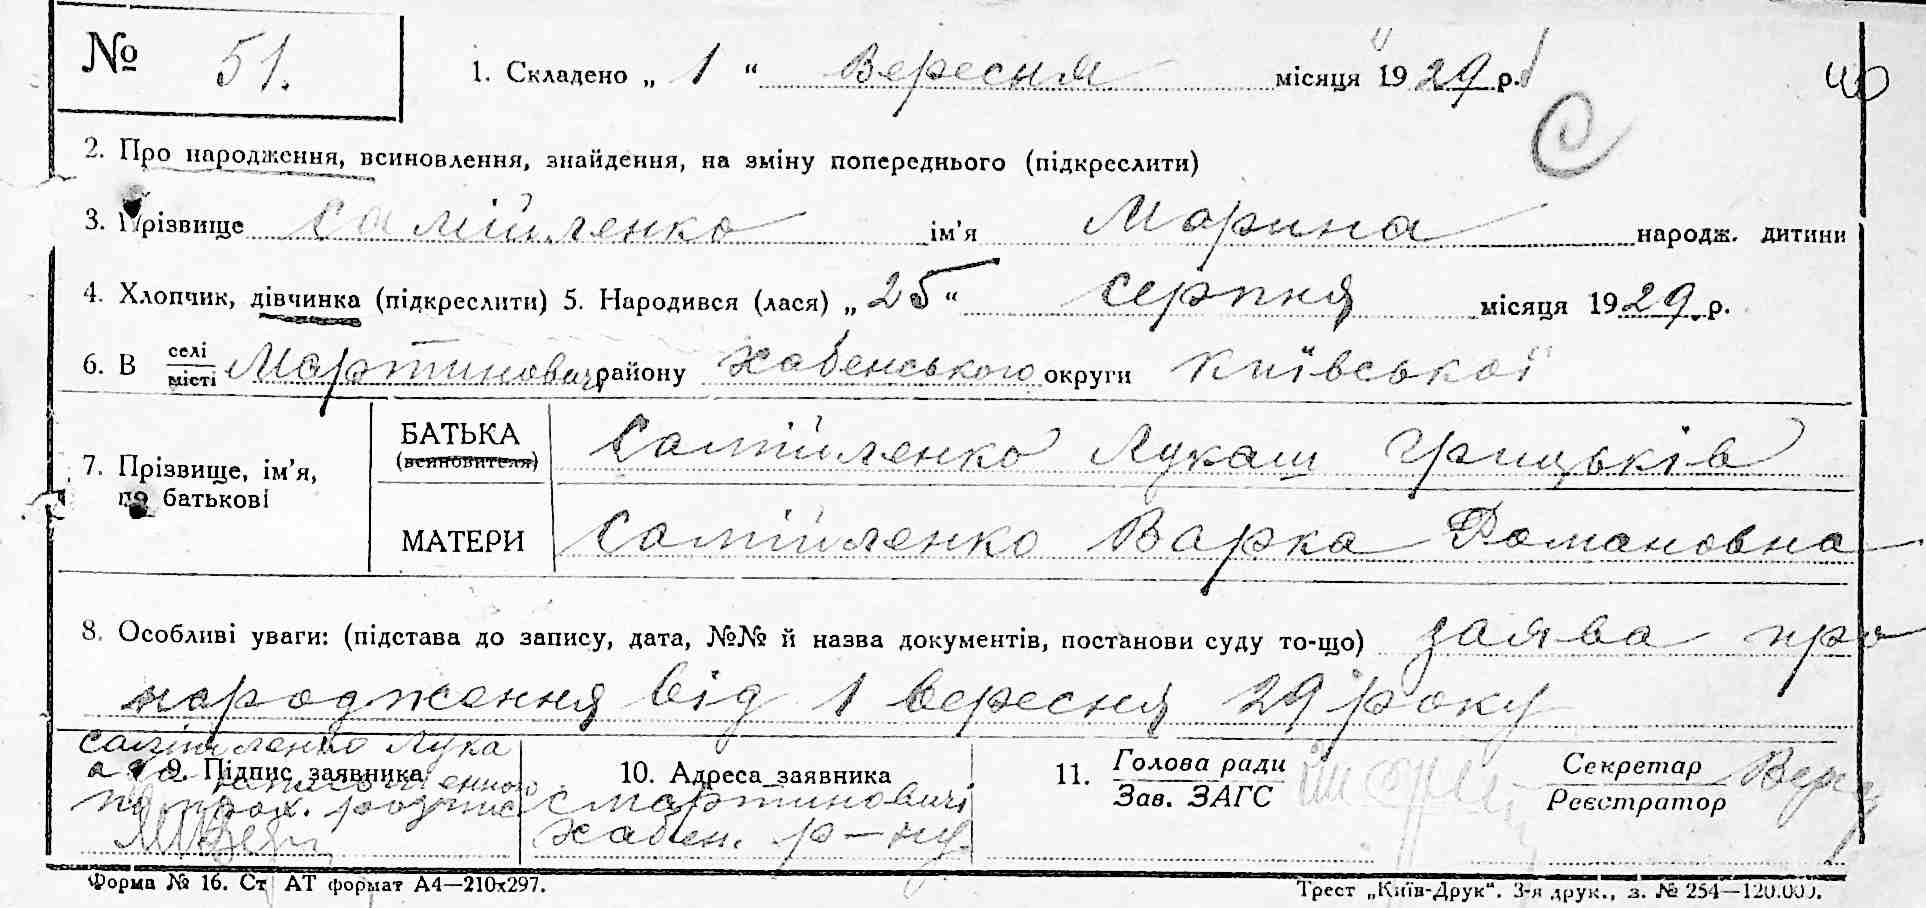 № 51. 1. Складено „ 1 “ Вересня місяця 1929 р. 40
С
2. Про народження, всиновлення, знайдення, на зміну попереднього (підкреслити)
3. Прізвище Самійленко ім’я Марина народж. дитини
4. Хлопчик, дівчинка (підкреслити) 5. Народився (лася) „ 25 “ серпня місяця 1929 р.
6. В селі/місті Мартиновичі району Хабенського округи Київської
7. Прізвище, ім’я, по батькові
БАТЬКА (всиновителя) Самійленко Лукаш Грицьків
МАТЕРИ Самійленко Варка Романовна
8. Особливі уваги: (підстава до запису, дата, №№ й назва документів, постанови суду то-що) заява про
народження від 1 вересня 29 року
Самійленко Лука
9. Підпис заявника
прох. розпис
10. Адреса заявника
с Мартиновичі
Хабен. р-ну.
11. Голова ради
Зав. ЗАГС
Секретар
Реєстратор
Форма № 16. Ст АТ формат А4—210х297.
Трест „Київ-Друк“. 3-я друк., з. № 254—120.000.